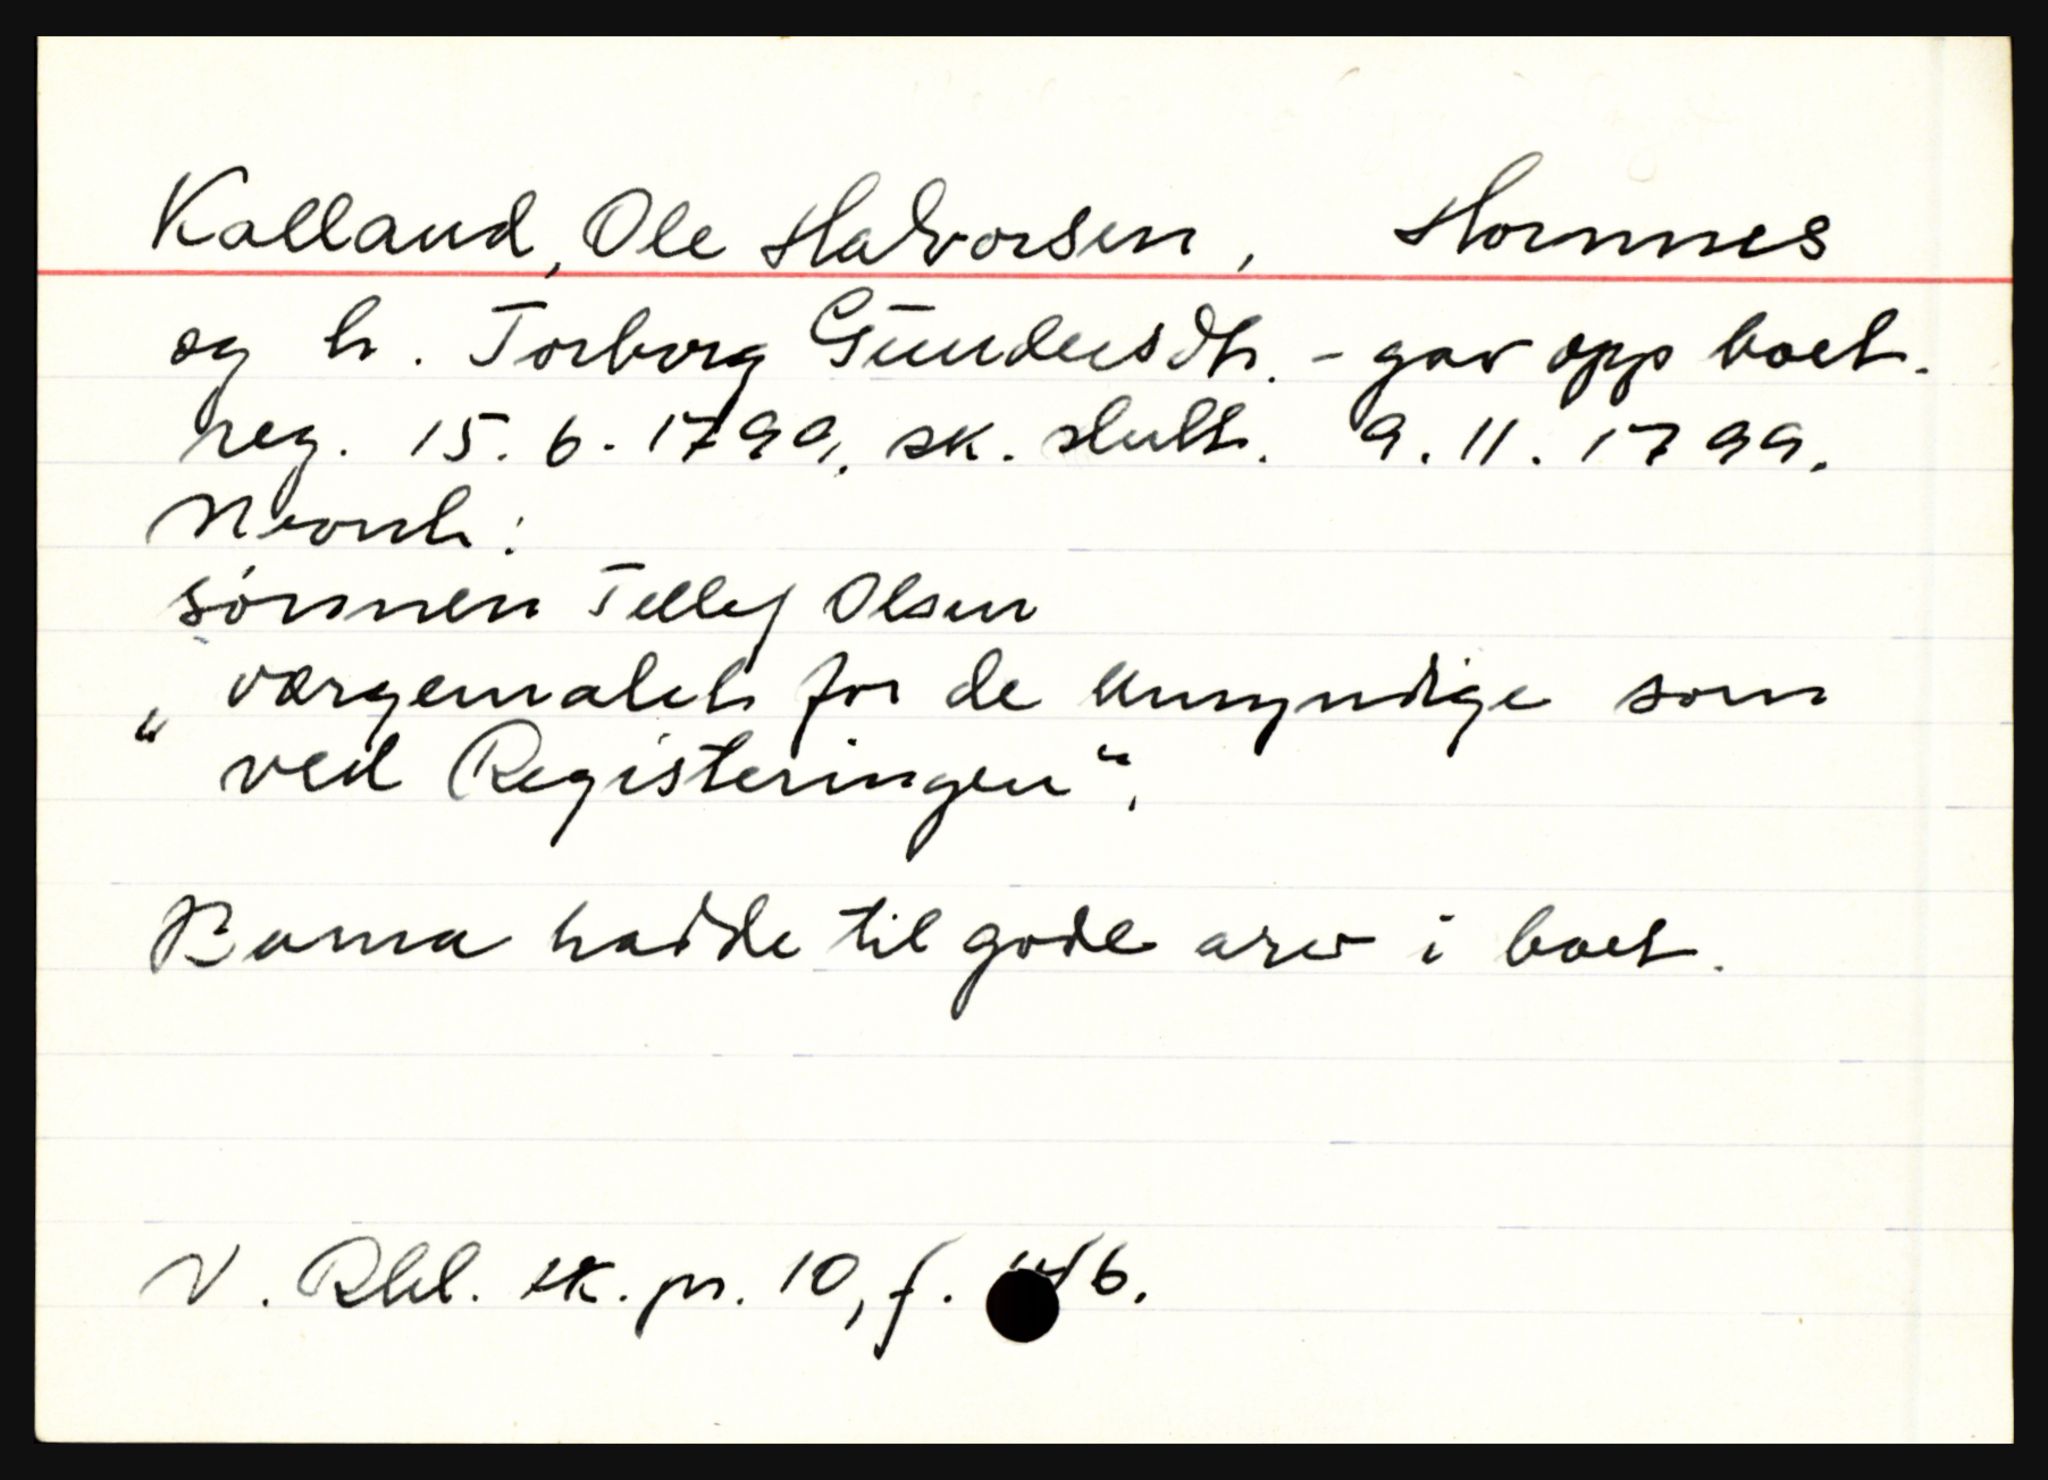 Kalland, Ole Halvorsen, Hornnes
og h. Torborg Gundersdtr. - gav opp boet.
reg. 15.6.1799, sk. slutt. 9.11.1799.
Nærv.:
sønnen Tellef Olsen
værgemålet for de umyndige som
" ved Registeringen".
Barna hadde til gode arv i boet.
V. Rbl. sk. pr. 10, f. 6.